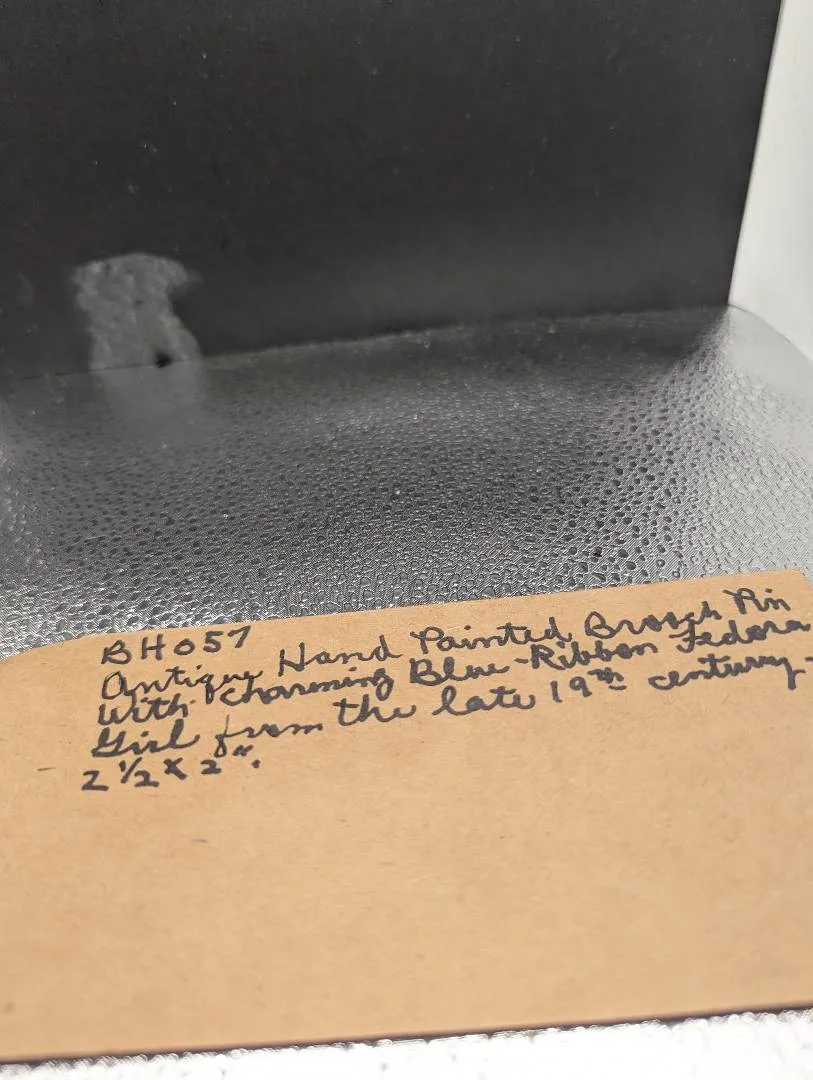 BH057
Antique Hand Painted Brooch Pin
With Charming Blue-Ribbon Fedora
Girl from the late 19th century-
2 1/2 x 2".